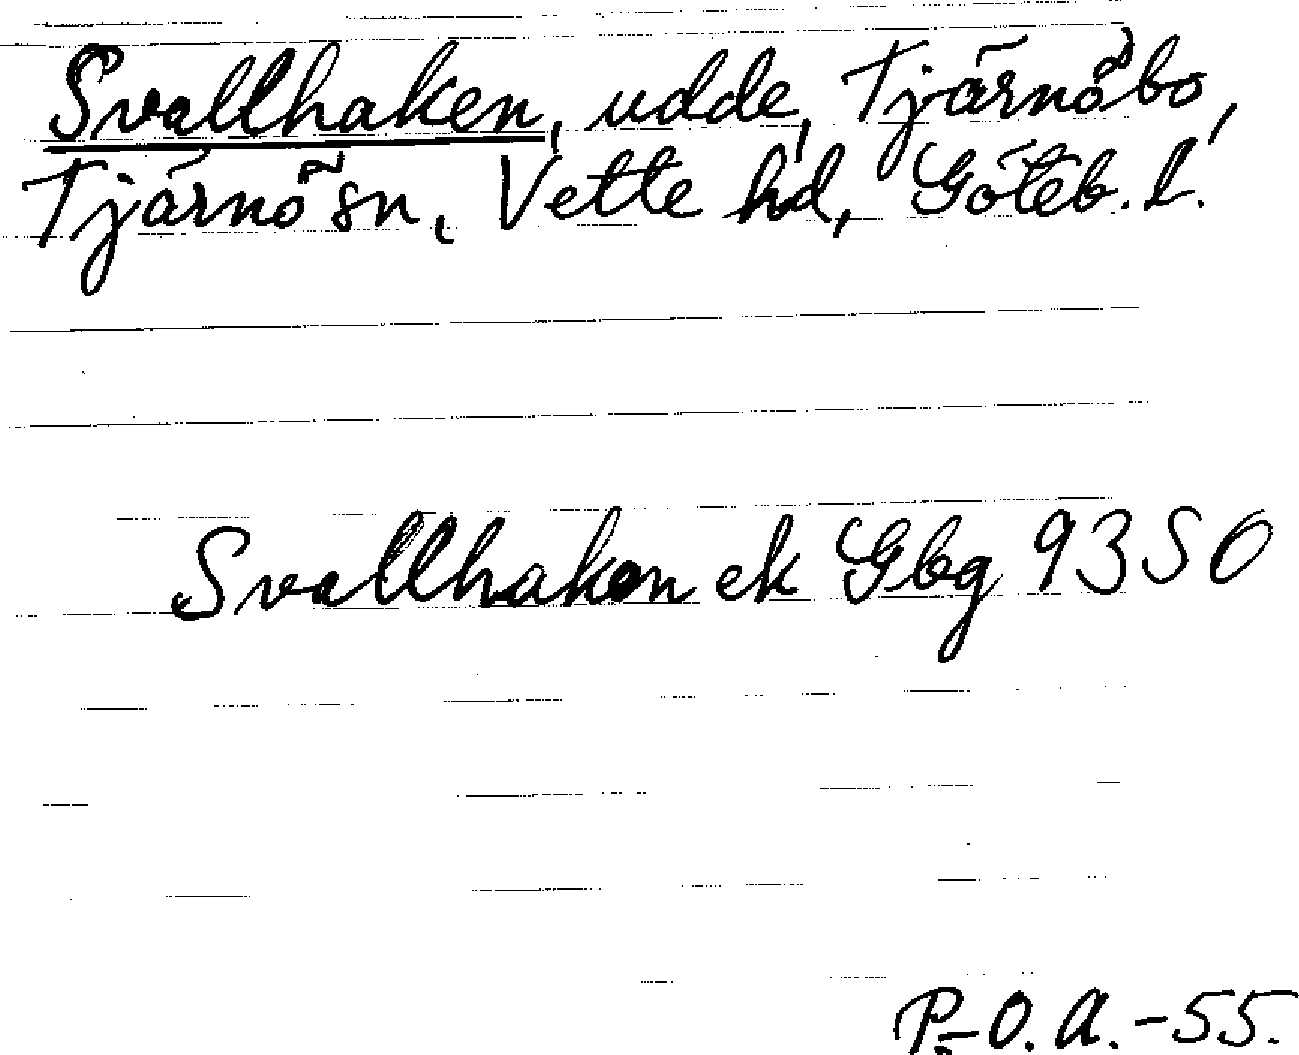 Svallhaken, udde, Tjärnöbo,
Tjärnö sn, Vette hd, Göteb. l.
Svallhaken ek Gbg 9350
P.-O. A. -55.